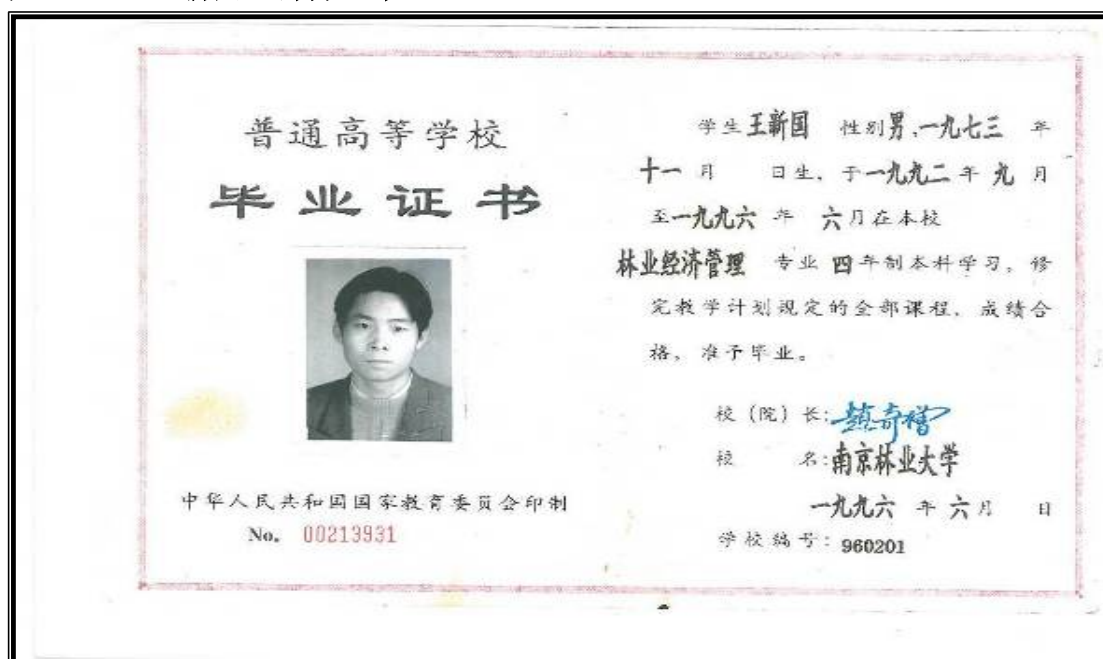 普通高等学校
毕业证书
中华人民共和国国家教育委员会印制
No. 00213931
学生王新国 性别男,一九七三 年
十一 月 日生, 于一九九二年 九 月
至一九九六 年 六月在本校
林业经济管理 专业 四年制本科学习, 修
完教学计划规定的全部课程, 成绩合
格, 准予毕业。
校 (院) 长:
校 名:南京林业大学
一九九六 年 六月 日
学校编号: 960201